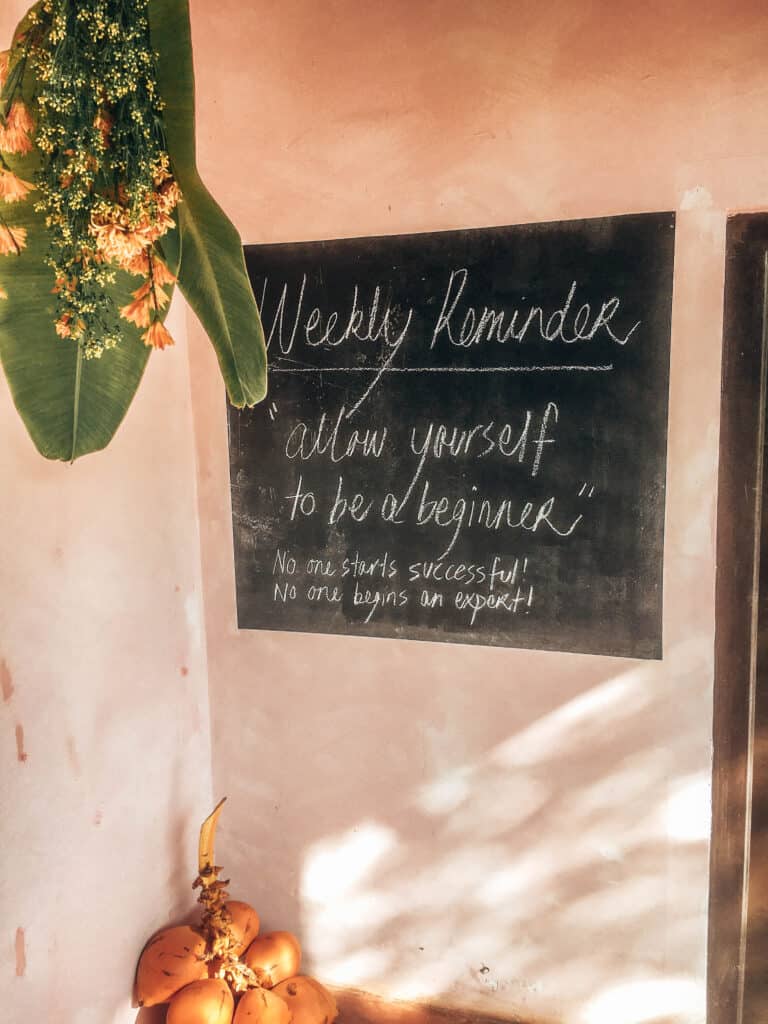 Weekly Reminder
"allow yourself
to be a beginner"
No one starts successful!
No one begins an expert!